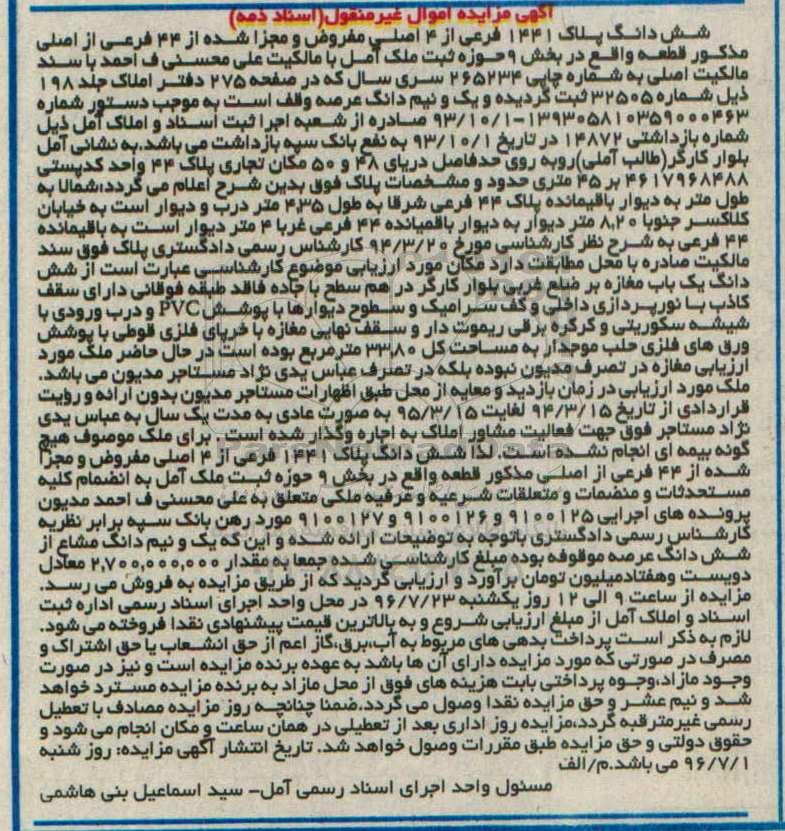 آگهی مزایده اموال غیرمنقول(اسناد ذمه)
شش دانگ پلاک ۱۴۴۱ فرعی از ۴ اصلی مفروض و مجزا شده از ۴۴ فرعی از اصلی
مذکور قطعه واقع در بخش ۹ حوزه ثبت ملک آمل با مالکیت علی محسنی ف احمد با سند
مالکیت اصلی به شماره چاپی ۲۶۵۲۳۴ سری سال که در صفحه ۲۷۵ دفتر املاک جلد ۱۹۸
ذیل شماره ۳۲۵۰۵ ثبت گردیده و یک و نیم دانگ عرصه وقف است به موجب دستور شماره
۱۳۹۳۰۵۸۱۰۳۵۹۰۰۰۴۶۳-۹۳/۱۰/۱ صادره از شعبه اجرا ثبت اسناد و املاک آمل ذیل
شماره بازداشتی ۱۴۸۷۲ در تاریخ ۹۳/۱۰/۱ به نفع بانک سپه بازداشت می باشد.به نشانی آمل
بلوار کارگر(طالب آملی)روبه روی حدفاصل دریای ۴۸ و ۵۰ مکان تجاری پلاک ۴۴ واحد کدپستی
۴۶۱۷۹۶۸۴۸۸ بر ۴۵ متری حدود و مشخصات پلاک فوق بدین شرح اعلام می گردد:شمالا به
طول متر به دیوار باقیمانده پلاک ۴۴ فرعی شرقا به طول ۴,۳۵ متر درب و دیوار است به خیابان
کلاکسر جنوبا ۸,۲۰ متر دیوار به دیوار باقمیانده ۴۴ فرعی غربا ۴ متر دیوار است به باقیمانده
۴۴ فرعی به شرح نظر کارشناسی مورخ ۹۴/۳/۲۰ کارشناس رسمی دادگستری پلاک فوق سند
مالکیت صادره با محل مطابقت دارد مکان مورد ارزیابی موضوع کارشناسی عبارت است از شش
دانگ یک باب مغازه بر ضلع غربی بلوار کارگر در هم سطح با جاده فاقد طبقه فوقانی دارای سقف
کاذب با نورپردازی داخلی و کف سرامیک و سطوح دیوارها با پوشش PVC و درب ورودی با
شیشه سکوریتی و کرکره برقی ریموت دار و سقف نهایی مغازه با خرپای فلزی قوطی با پوشش
ورق های فلزی حلب موجدار به مساحت کل ۳۳,۸۰ مترمربع بوده است در حال حاضر ملک مورد
ارزیابی مغازه در تصرف مدیون نبوده بلکه در تصرف عباس یدی نژاد مستاجر مدیون می باشد.
ملک مورد ارزیابی در زمان بازدید و معایه از محل طبق اظهارات مستاجر مدیون بدون ارائه و رؤیت
قراردادی از تاریخ ۹۴/۳/۱۵ لغایت ۹۵/۳/۱۵ به صورت عادی به مدت یک سال به عباس یدی
نژاد مستاجر فوق جهت فعالیت مشاور املاک به اجاره وگذار شده است . برای ملک موصوف هیچ
گونه بیمه ای انجام نشده است. لذا شش دانگ پلاک ۱۴۴۱ فرعی از ۴ اصلی مفروض و مجزا
شده از ۴۴ فرعی از اصلی مذکور قطعه واقع در بخش ۹ حوزه ثبت ملک آمل به انضمام کلیه
مستحدثات و منضمات و متعلقات شرعیه و عرفیه ملکی متعلق به علی محسنی ف احمد مدیون
پرونده های اجرایی ۹۱۰۰۱۲۵ و ۹۱۰۰۱۲۶ و ۹۱۰۰۱۲۷ مورد رهن بانک سپه برابر نظریه
کارشناس رسمی دادگستری باتوجه به توضیحات ارائه شده و این که یک و نیم دانگ مشاع از
شش دانگ عرصه موقوفه بوده مبلغ کارشناسی شده جمعا به مقدار ۲,۷۰۰,۰۰۰,۰۰۰ معادل
دویست وهفتادمیلیون تومان برآورد و ارزیابی گردید که از طریق مزایده به فروش می رسد.
مزایده از ساعت ۹ الی ۱۲ روز یکشنبه ۹۶/۷/۲۳ در محل واحد اجرای اسناد رسمی اداره ثبت
اسناد و املاک آمل از مبلغ ارزیابی شروع و به بالاترین قیمت پیشنهادی نقدا فروخته می شود.
لازم به ذکر است پرداخت بدهی های مربوط به آب،برق،گاز اعم از حق انشعاب یا حق اشتراک و
مصرف در صورتی که مورد مزایده دارای آن ها باشد به عهده برنده مزایده است و نیز در صورت
وجود مازاد،وجوه پرداختی بابت هزینه های فوق از محل مازاد به برنده مزایده مسترد خواهد
شد و نیم عشر و حق مزایده نقدا وصول می گردد.ضمنا چنانچه روز مزایده مصادف با تعطیل
رسمی غیرمترقبه گردد،مزایده روز اداری بعد از تعطیلی در همان ساعت و مکان انجام می شود و
حقوق دولتی و حق مزایده طبق مقررات وصول خواهد شد. تاریخ انتشار آگهی مزایده: روز شنبه
۹۶/۷/۱ می باشد.م/الف
مسئول واحد اجرای اسناد رسمی آمل- سید اسماعیل بنی هاشمی